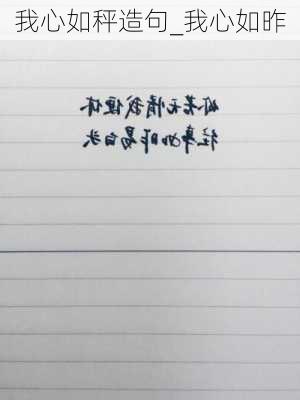 我心如秤造句_我心如昨
你若无情我便休
往事如昨易白头